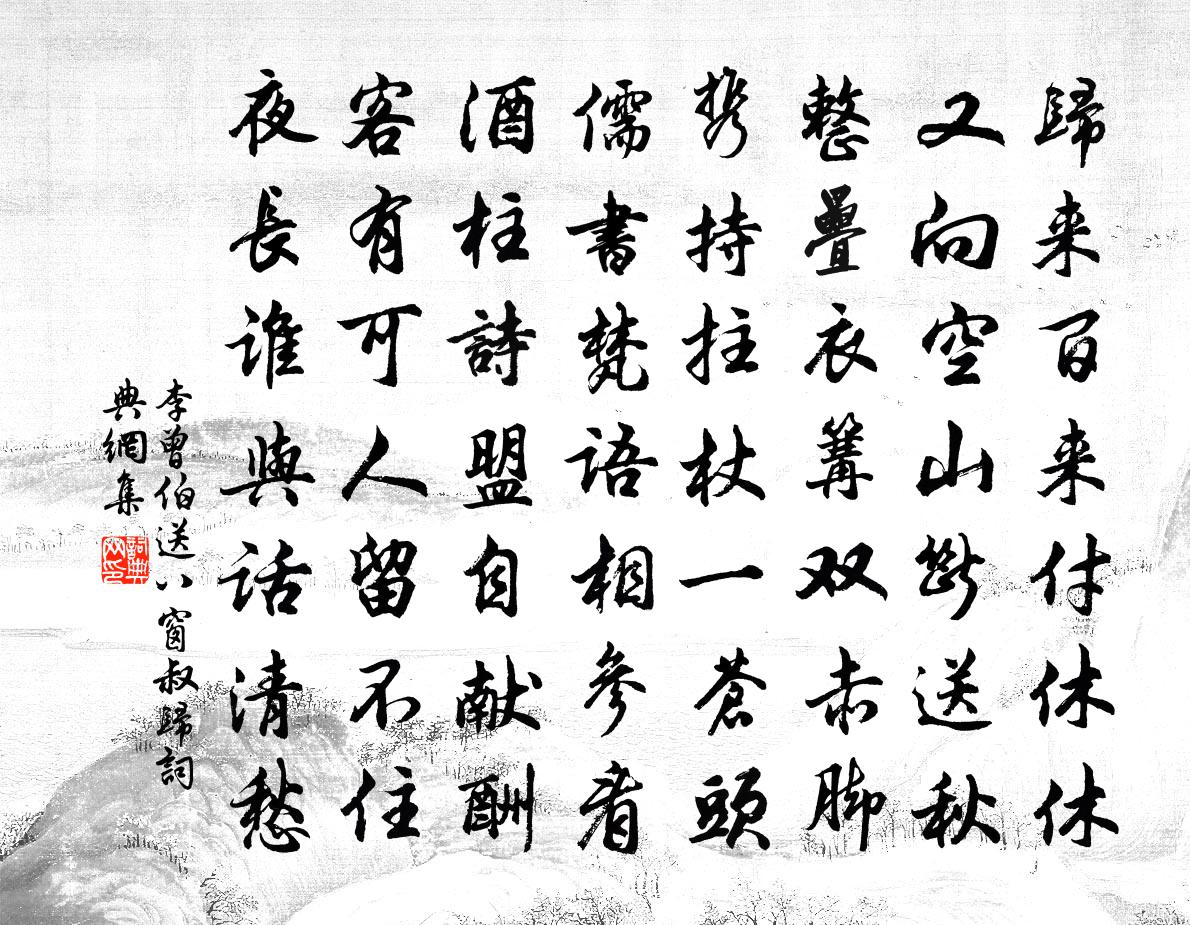 歸来百来付休休
又向空山斷送秋
整疊衣篝双赤脚
携持拄杖一蒼頭
儒書梵語相參看
酒柱詩盟自献酬
客有可人留不住
夜長誰與話清愁
李曾伯送八窗叔歸詞
典網集
詞典网印